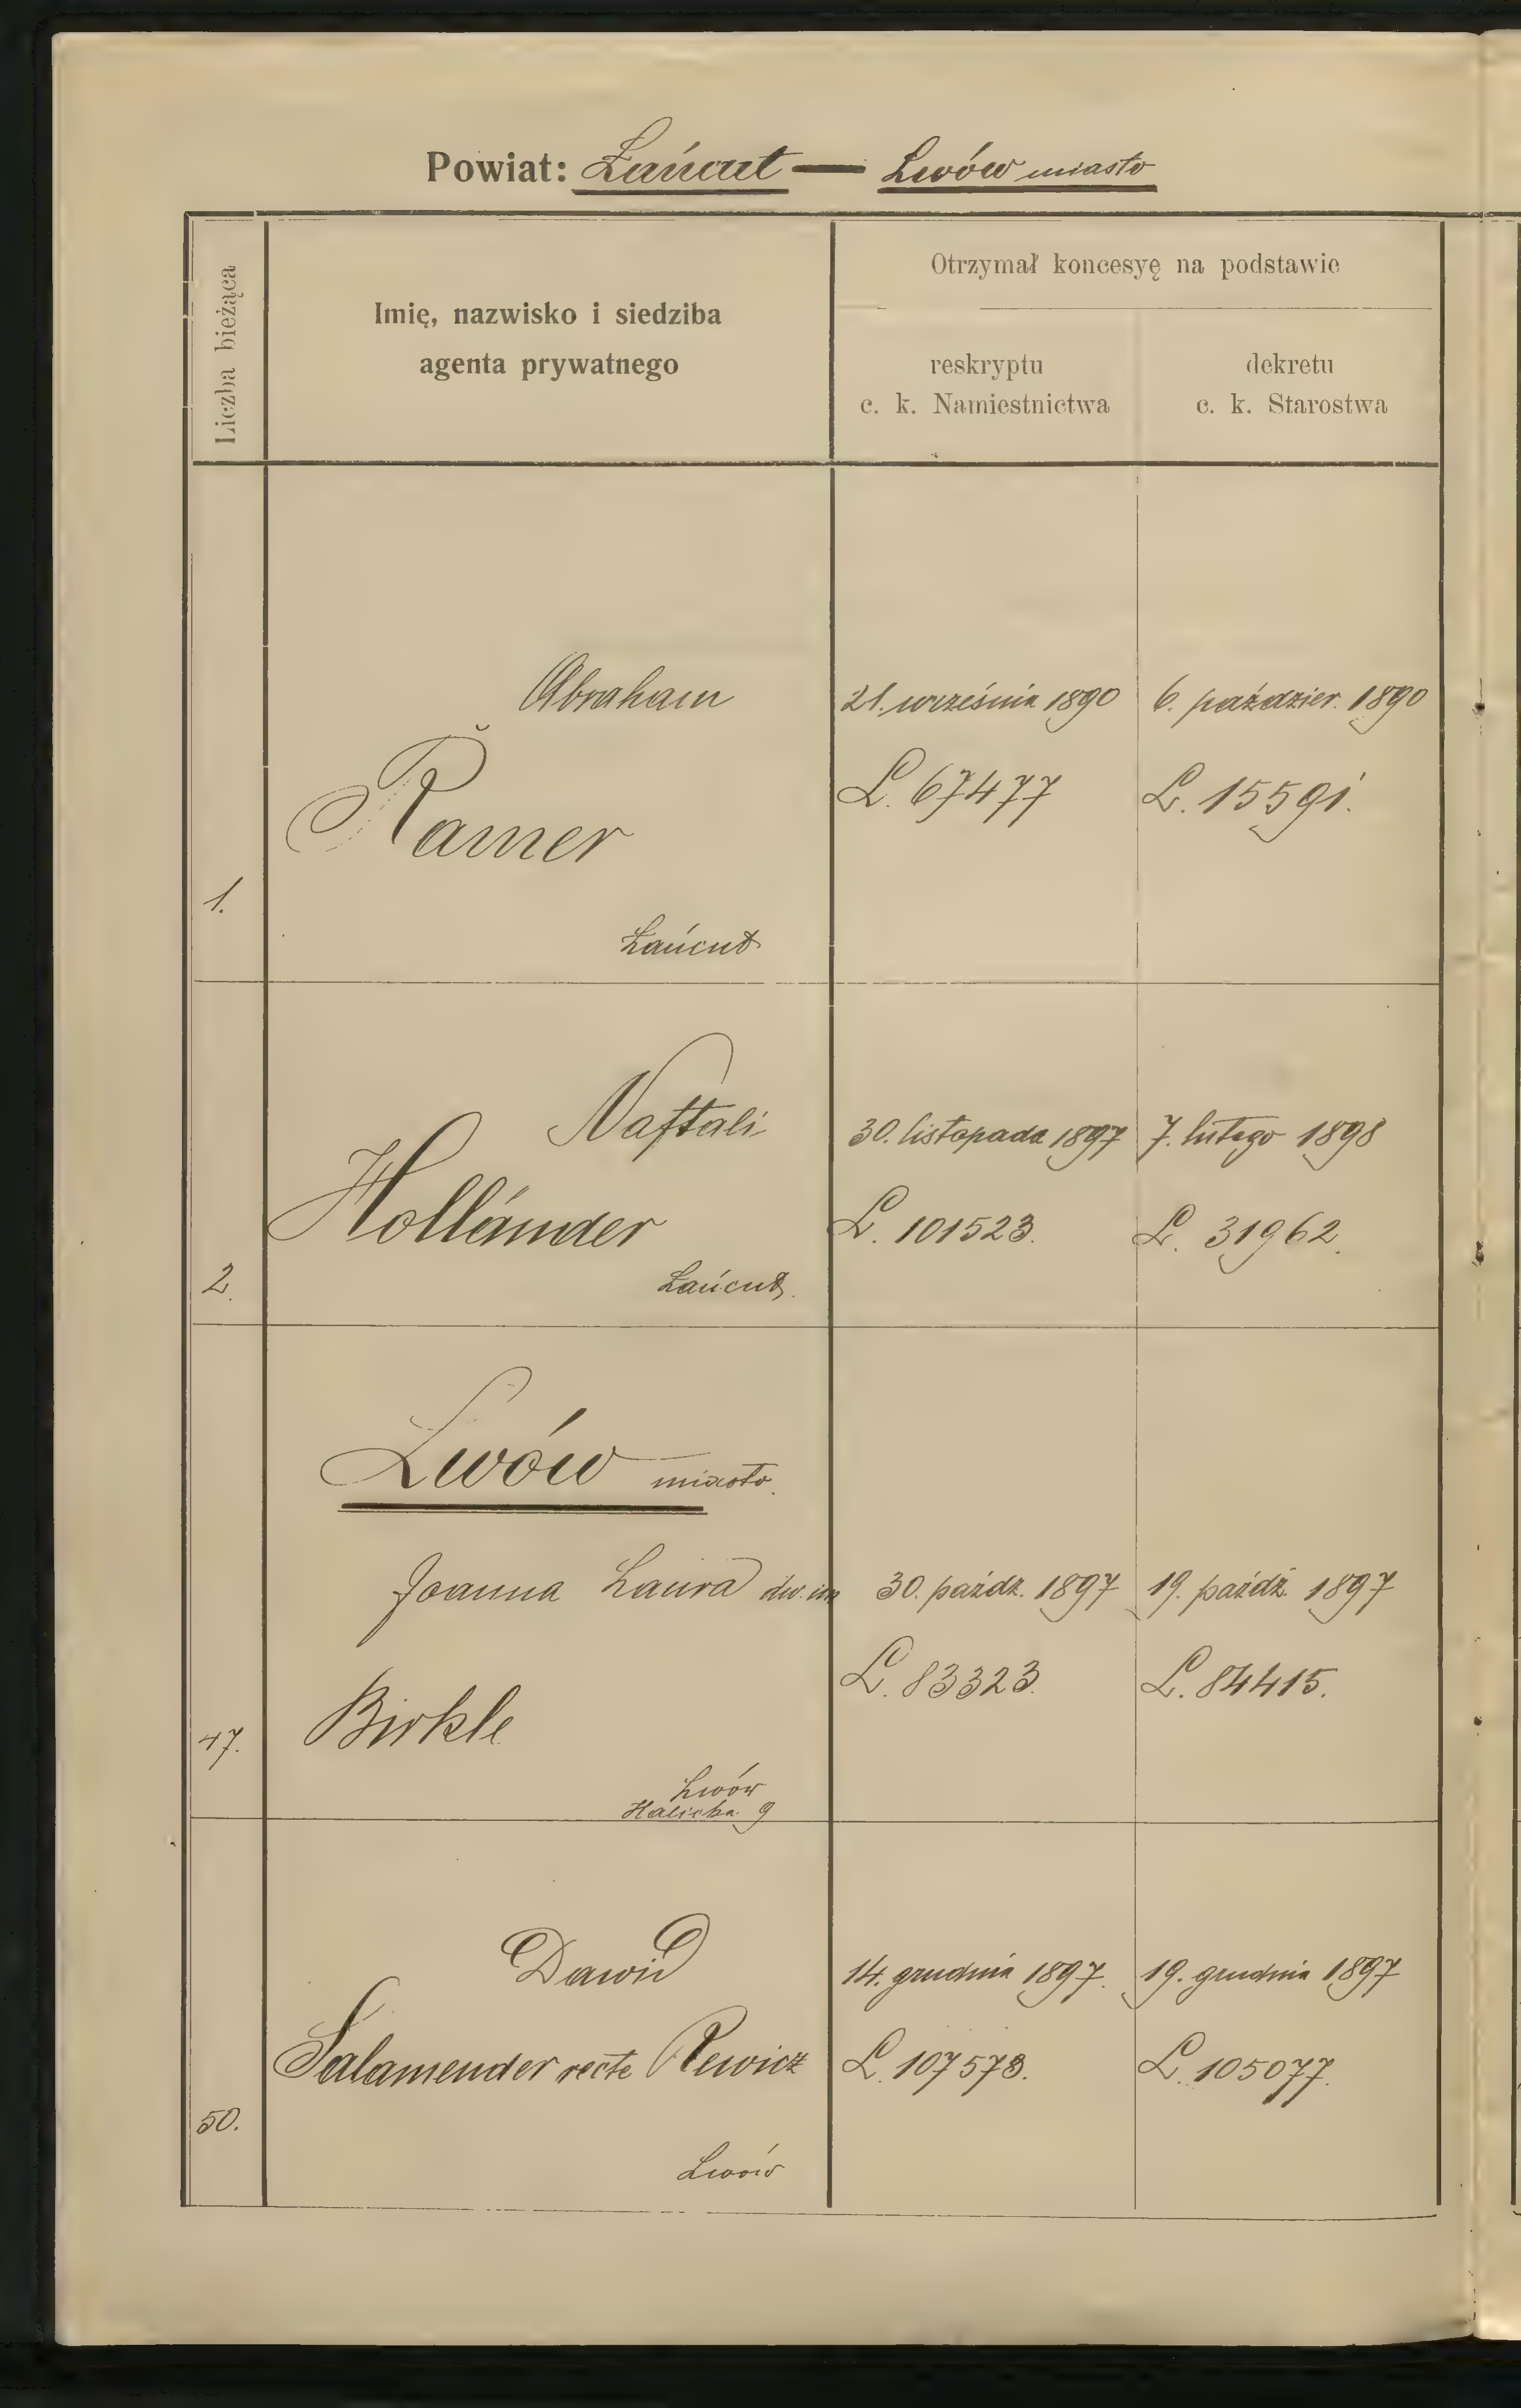 Powiat: Łańcut — Lwów miasto
Liczba bieżąca
Imię, nazwisko i siedziba
agenta prywatnego
Otrzymał koncesyę na podstawie
reskryptu
c. k. Namiestnictwa
dekretu
c. k. Starostwa
1.
Abraham
Ramer
Łańcut
21. września 1890
L. 67477
6. paździer. 1890
L. 15591.
2.
Naftali
Holländer
Łańcut.
30. listopada 1897
L. 101523.
7. lutego 1898
L. 31962.
Lwów miasto.
47.
Joanna Laura dw. im
Birkle
Lwów
Halicka 9
30. paźdz. 1897
L. 83323.
19. paźdź. 1897
L. 84415.
50.
Dawid
Salamender recte Rewicz
Lwów
14. grudnia 1897.
L. 107578.
19. grudnia 1897
L. 105077.